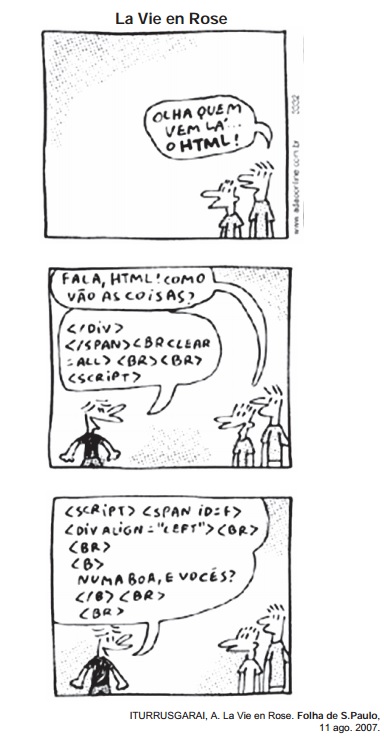 La Vie en Rose
OLHA QUEM
VEM LÁ...
O HTML!
www.adaoonline.com.br
3032
FALA, HTML! COMO
VÃO AS COISAS?
</DIV>
</SPAN><BR CLEAR
=ALL><BR><BR>
<SCRIPT>
<SCRIPT> <SPAN ID=F>
<DIV ALIGN="LEFT"><BR>
<BR>
<B>
NUMA BOA, E VOCÊS?
</B><BR>
<BR>
ITURRUSGARAI, A. La Vie en Rose. Folha de S.Paulo,
11 ago. 2007.